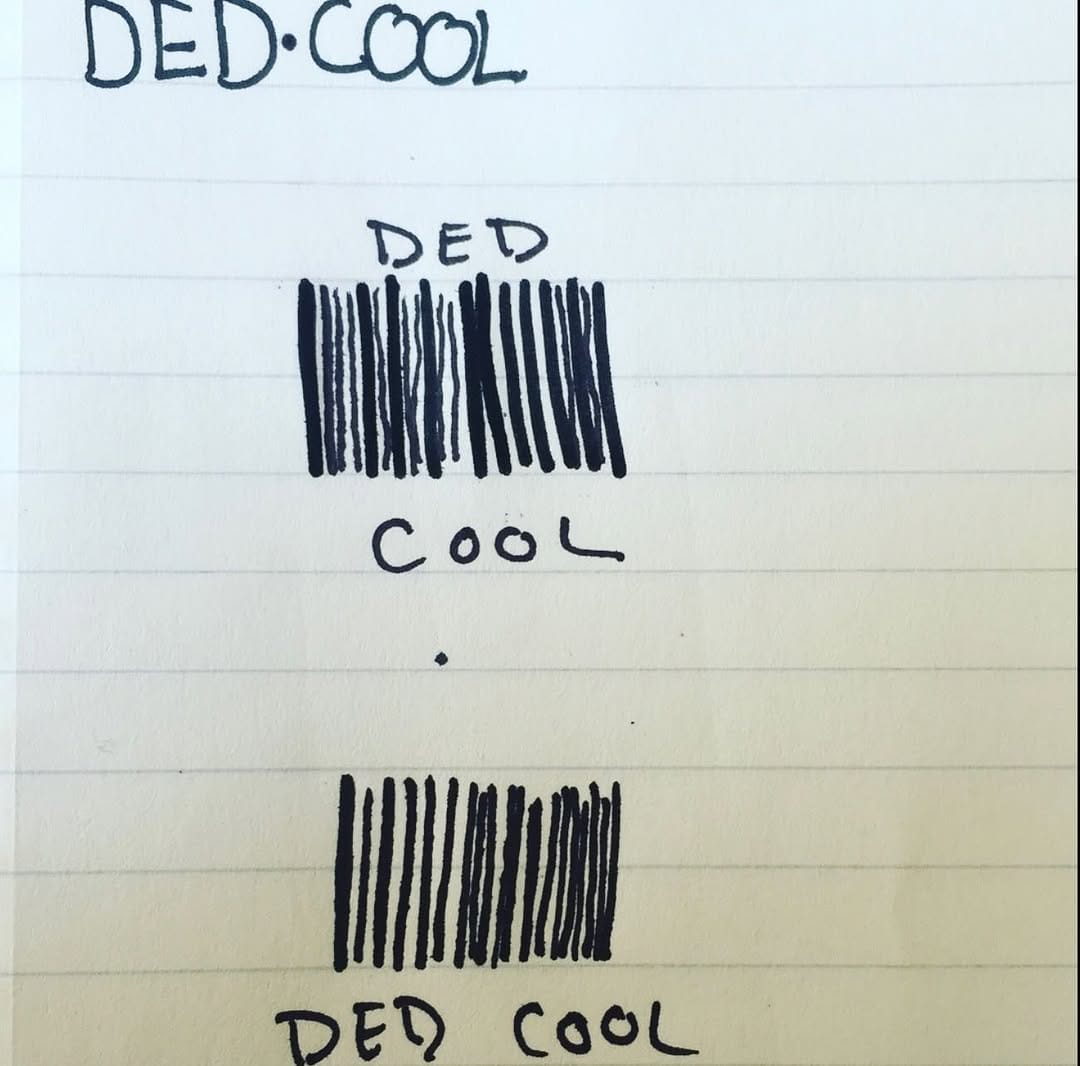 DED·COOL
DED
COOL
DED COOL